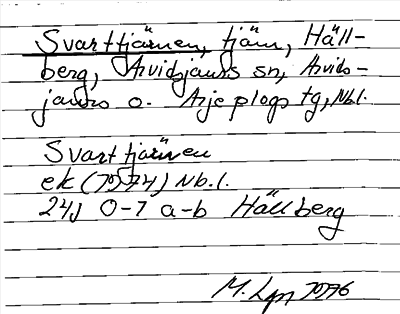 Svarttjärnen, tjärn, Häll-
berg, Arvidsjaurs sn, Arvids-
jaurs o. Arjeplogs tg, Nb.l.
Svarttjärnen
ek (1974) Nb.l.
24J 0-7 a-b Hällberg
M. Lgn 1976